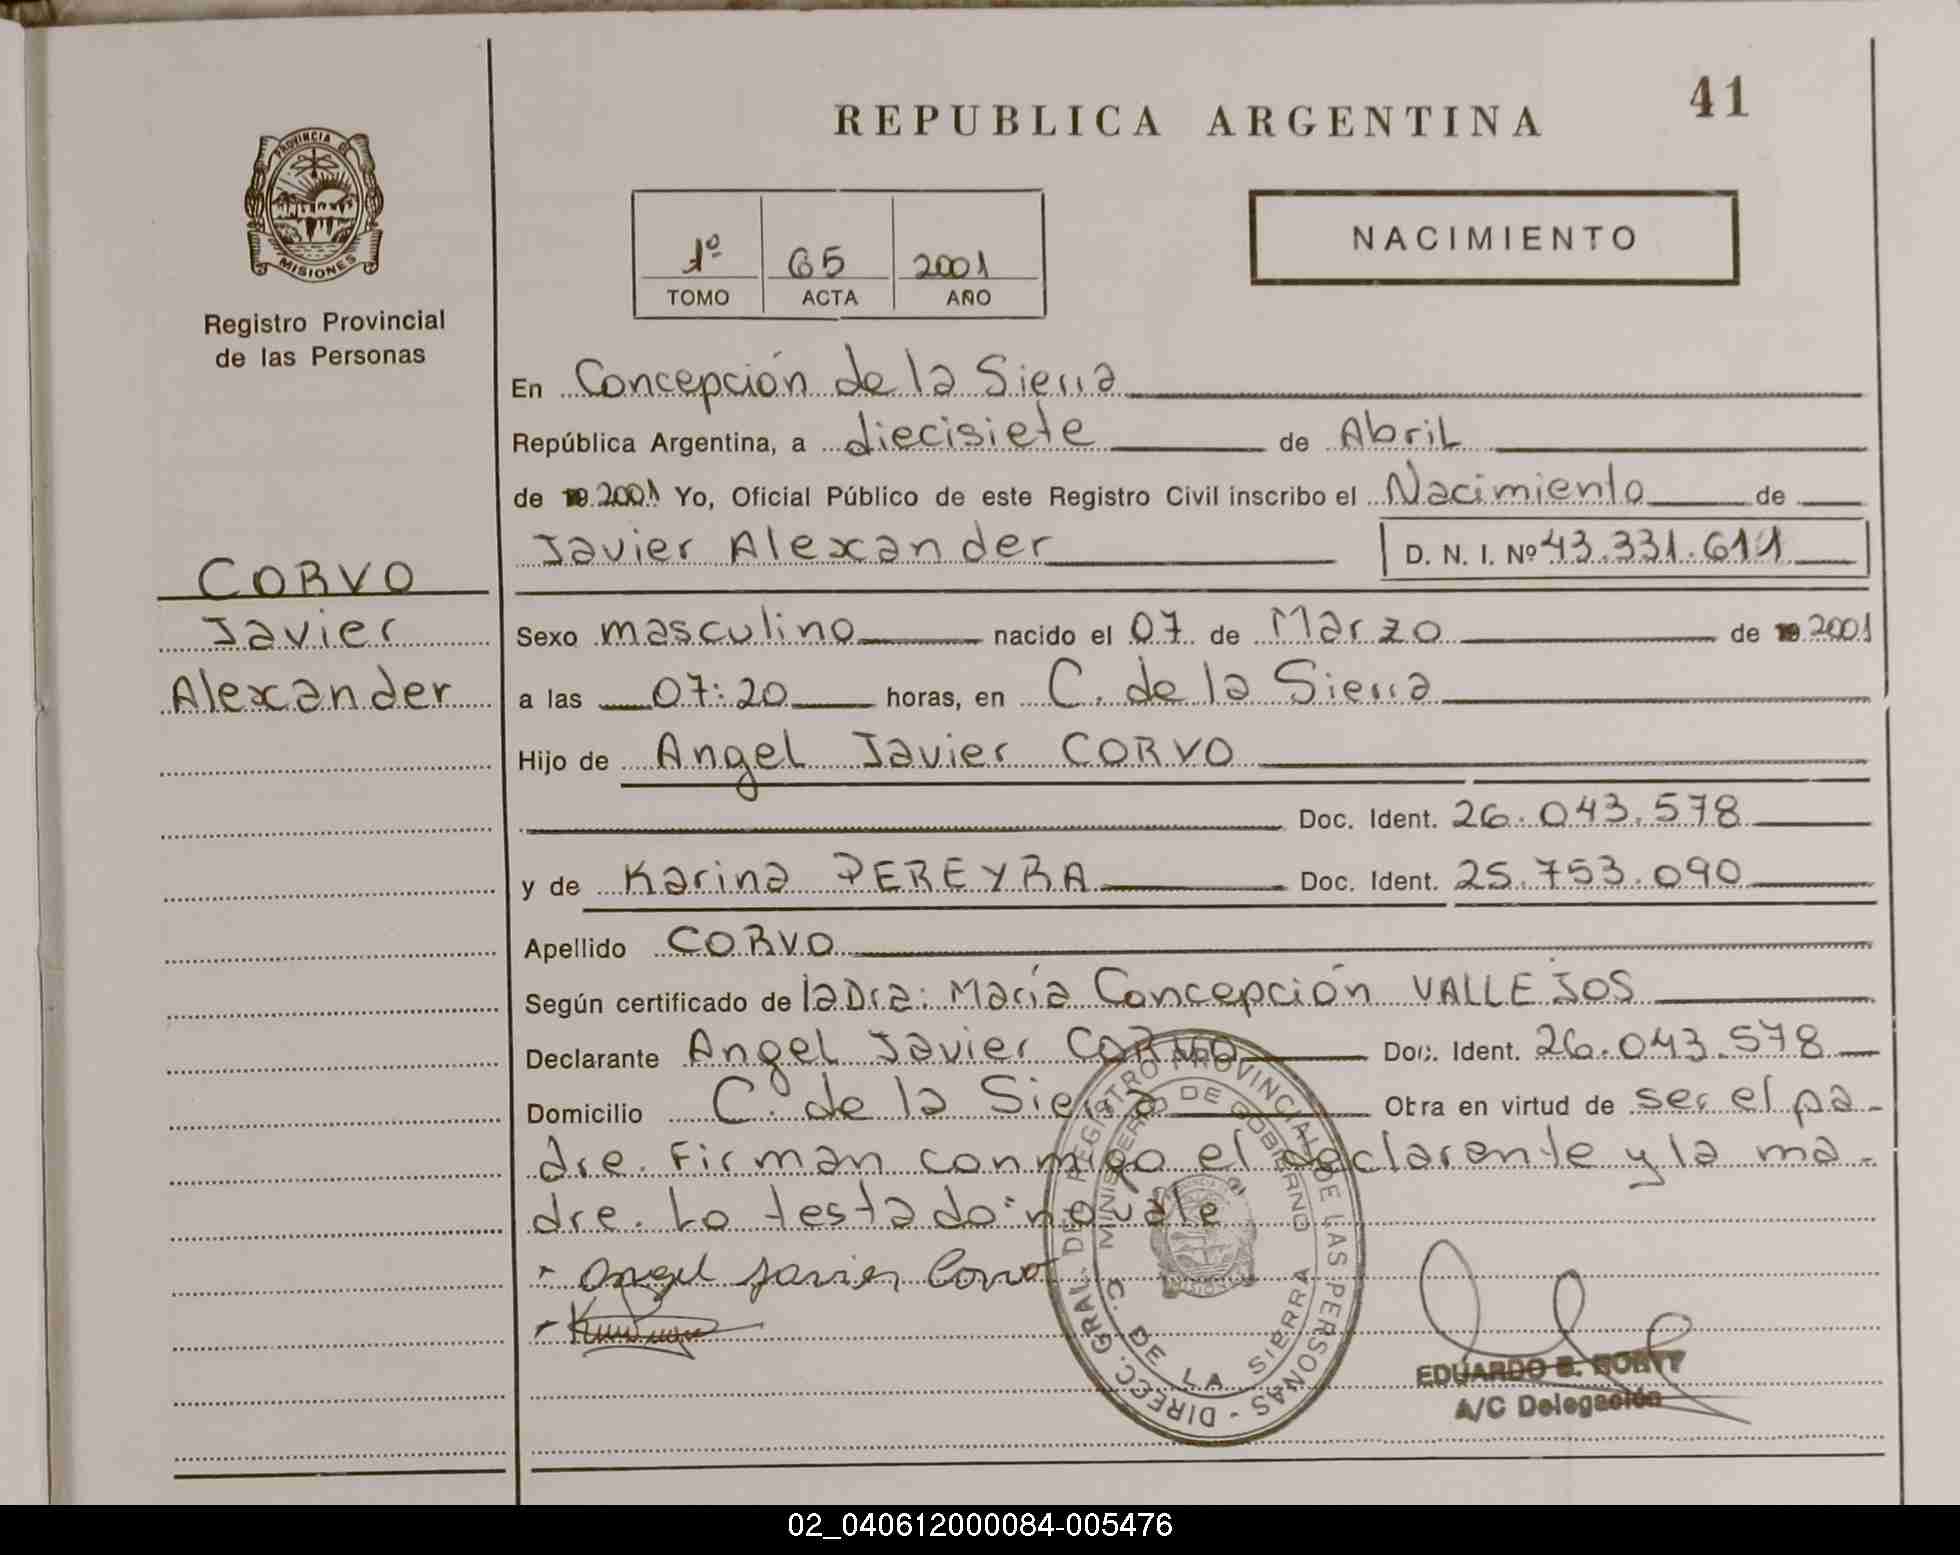 REPUBLICA ARGENTINA
41
PROVINCIA DE
MISIONES
Registro Provincial
de las Personas
1º 65 2001
TOMO ACTA AÑO
NACIMIENTO
En Concepción de la Sierra
República Argentina, a diecisiete de Abril
de 19 2001 Yo, Oficial Público de este Registro Civil inscribo el Nacimiento de
Javier Alexander D. N. I. Nº 43.331.611
CORVO
Javier
Alexander
Sexo masculino nacido el 07 de Marzo de 19 2001
a las 07:20 horas, en C. de la Sierra
Hijo de Angel Javier CORVO
Doc. Ident. 26.043.578
y de Karina PEREYRA Doc. Ident. 25.753.090
Apellido CORVO
Según certificado de la Dra: María Concepción VALLEJOS
Declarante Angel Javier CORVO Doc. Ident. 26.043.578
Domicilio C. de la Sierra Obra en virtud de ser el pa-
dre. Firman conmigo el declarante y la ma-
dre. Lo testado: no vale
- Angel Javier Corvo
DIREC. GRAL. DE REGISTRO PROVINCIAL DE LAS PERSONAS -
MINISTERIO DE GOBIERNO
C. DE LA SIERRA
EDUARDO
A/C Delegación
02_040612000084-005476